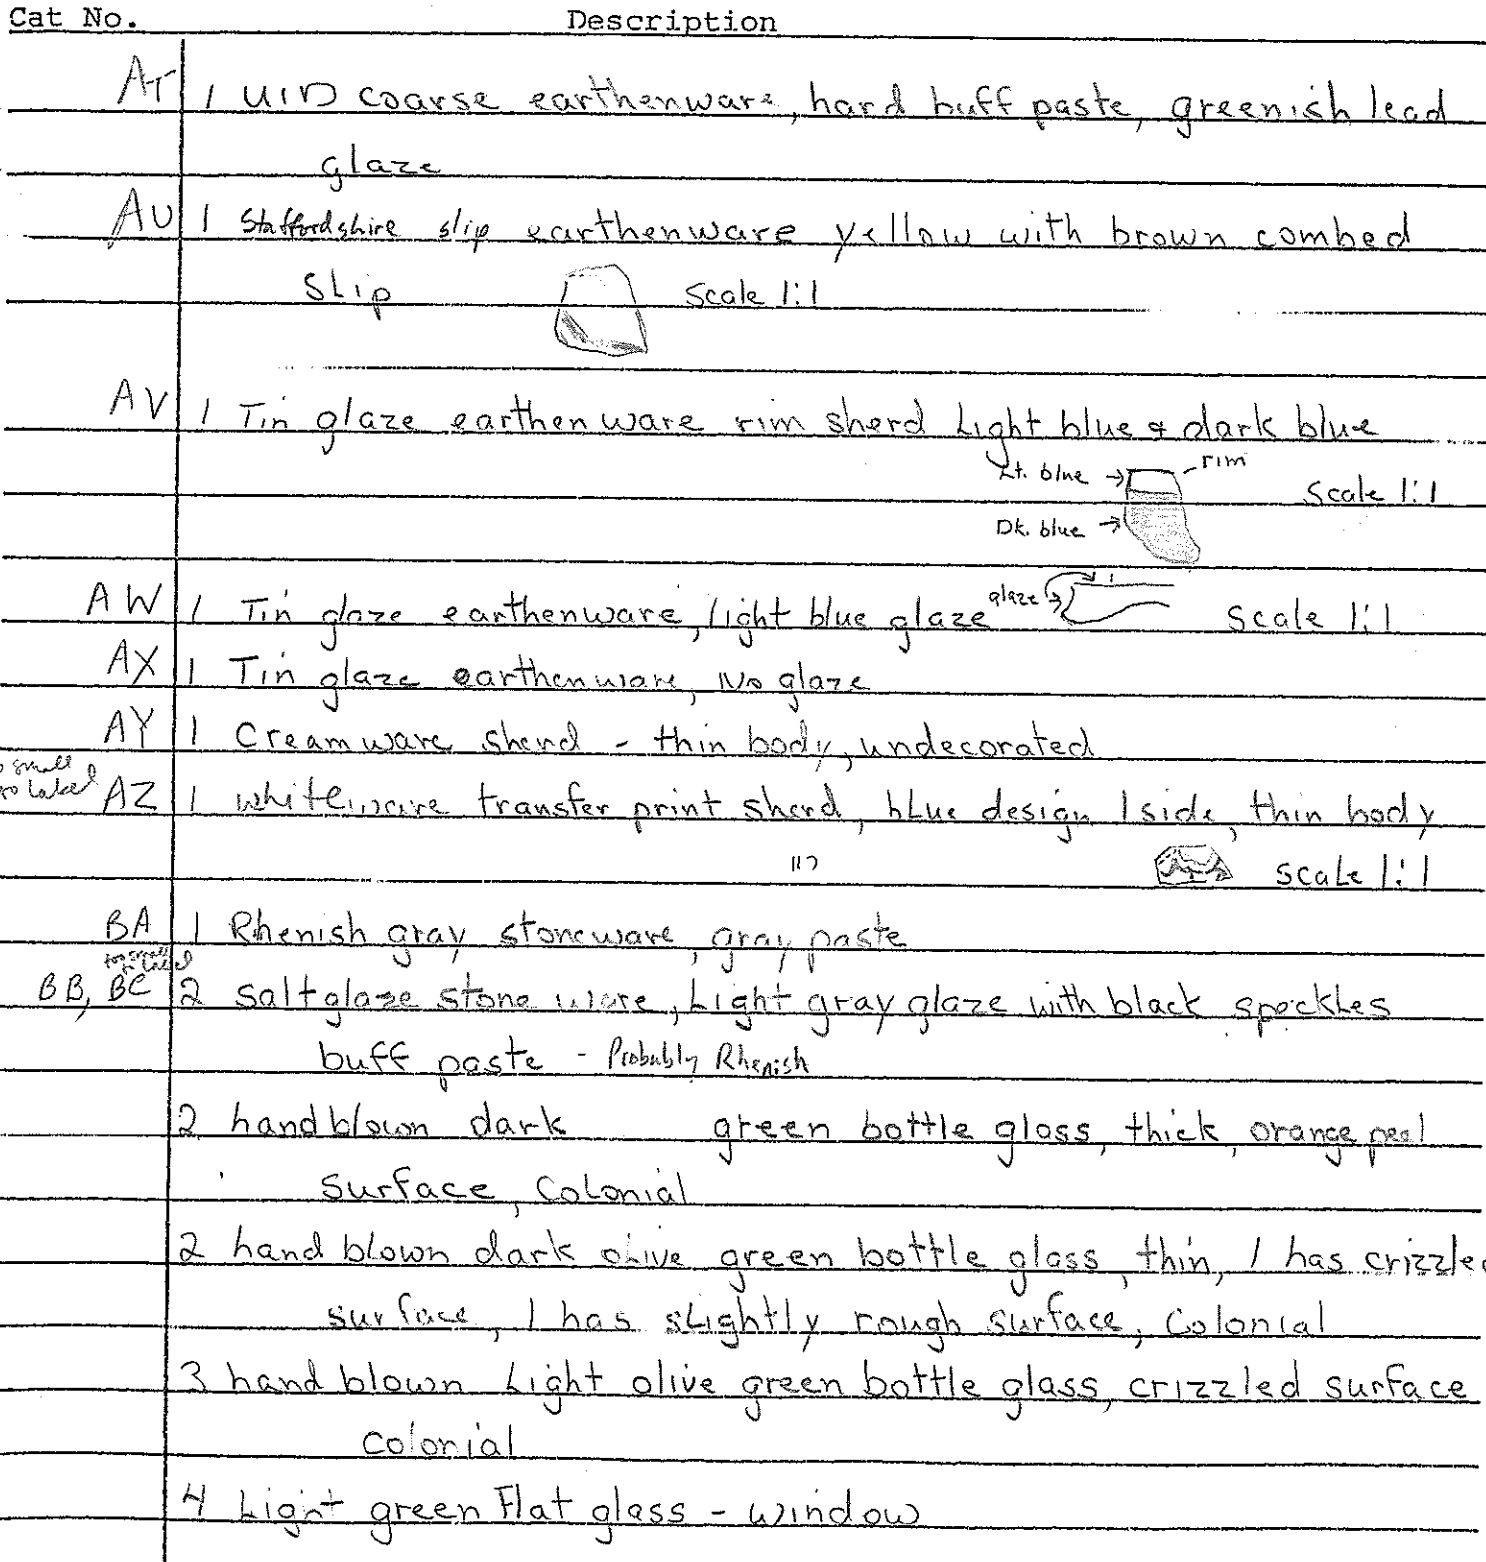 Cat No. Description
AT 1 UID coarse earthenware, hard buff paste, greenish lead
glaze
AU 1 Staffordshire slip earthenware yellow with brown combed
Slip Scale 1:1
AV 1 Tin glaze earthenware rim sherd Light blue & dark blue
Lt. blue → rim
Scale 1:1
Dk. blue →
AW 1 Tin glaze earthenware, light blue glaze glaze Scale 1:1
AX 1 Tin glaze earthenware, No glaze
AY 1 Creamware sherd - thin body, undecorated
small
to label AZ 1 whiteware transfer print sherd, blue design 1 side, thin body
Scale 1:1
BA 1 Rhenish gray stoneware, gray paste
too small
to label
BB, BC 2 Saltglaze stoneware, Light gray glaze with black speckles
buff paste - Probably Rhenish
2 hand blown dark green bottle glass, thick, orange peel
Surface, Colonial
2 hand blown dark olive green bottle glass, thin, 1 has crizzled
surface, 1 has slightly rough surface, Colonial
3 hand blown Light olive green bottle glass, crizzled surface
Colonial
4 Light green Flat glass - window